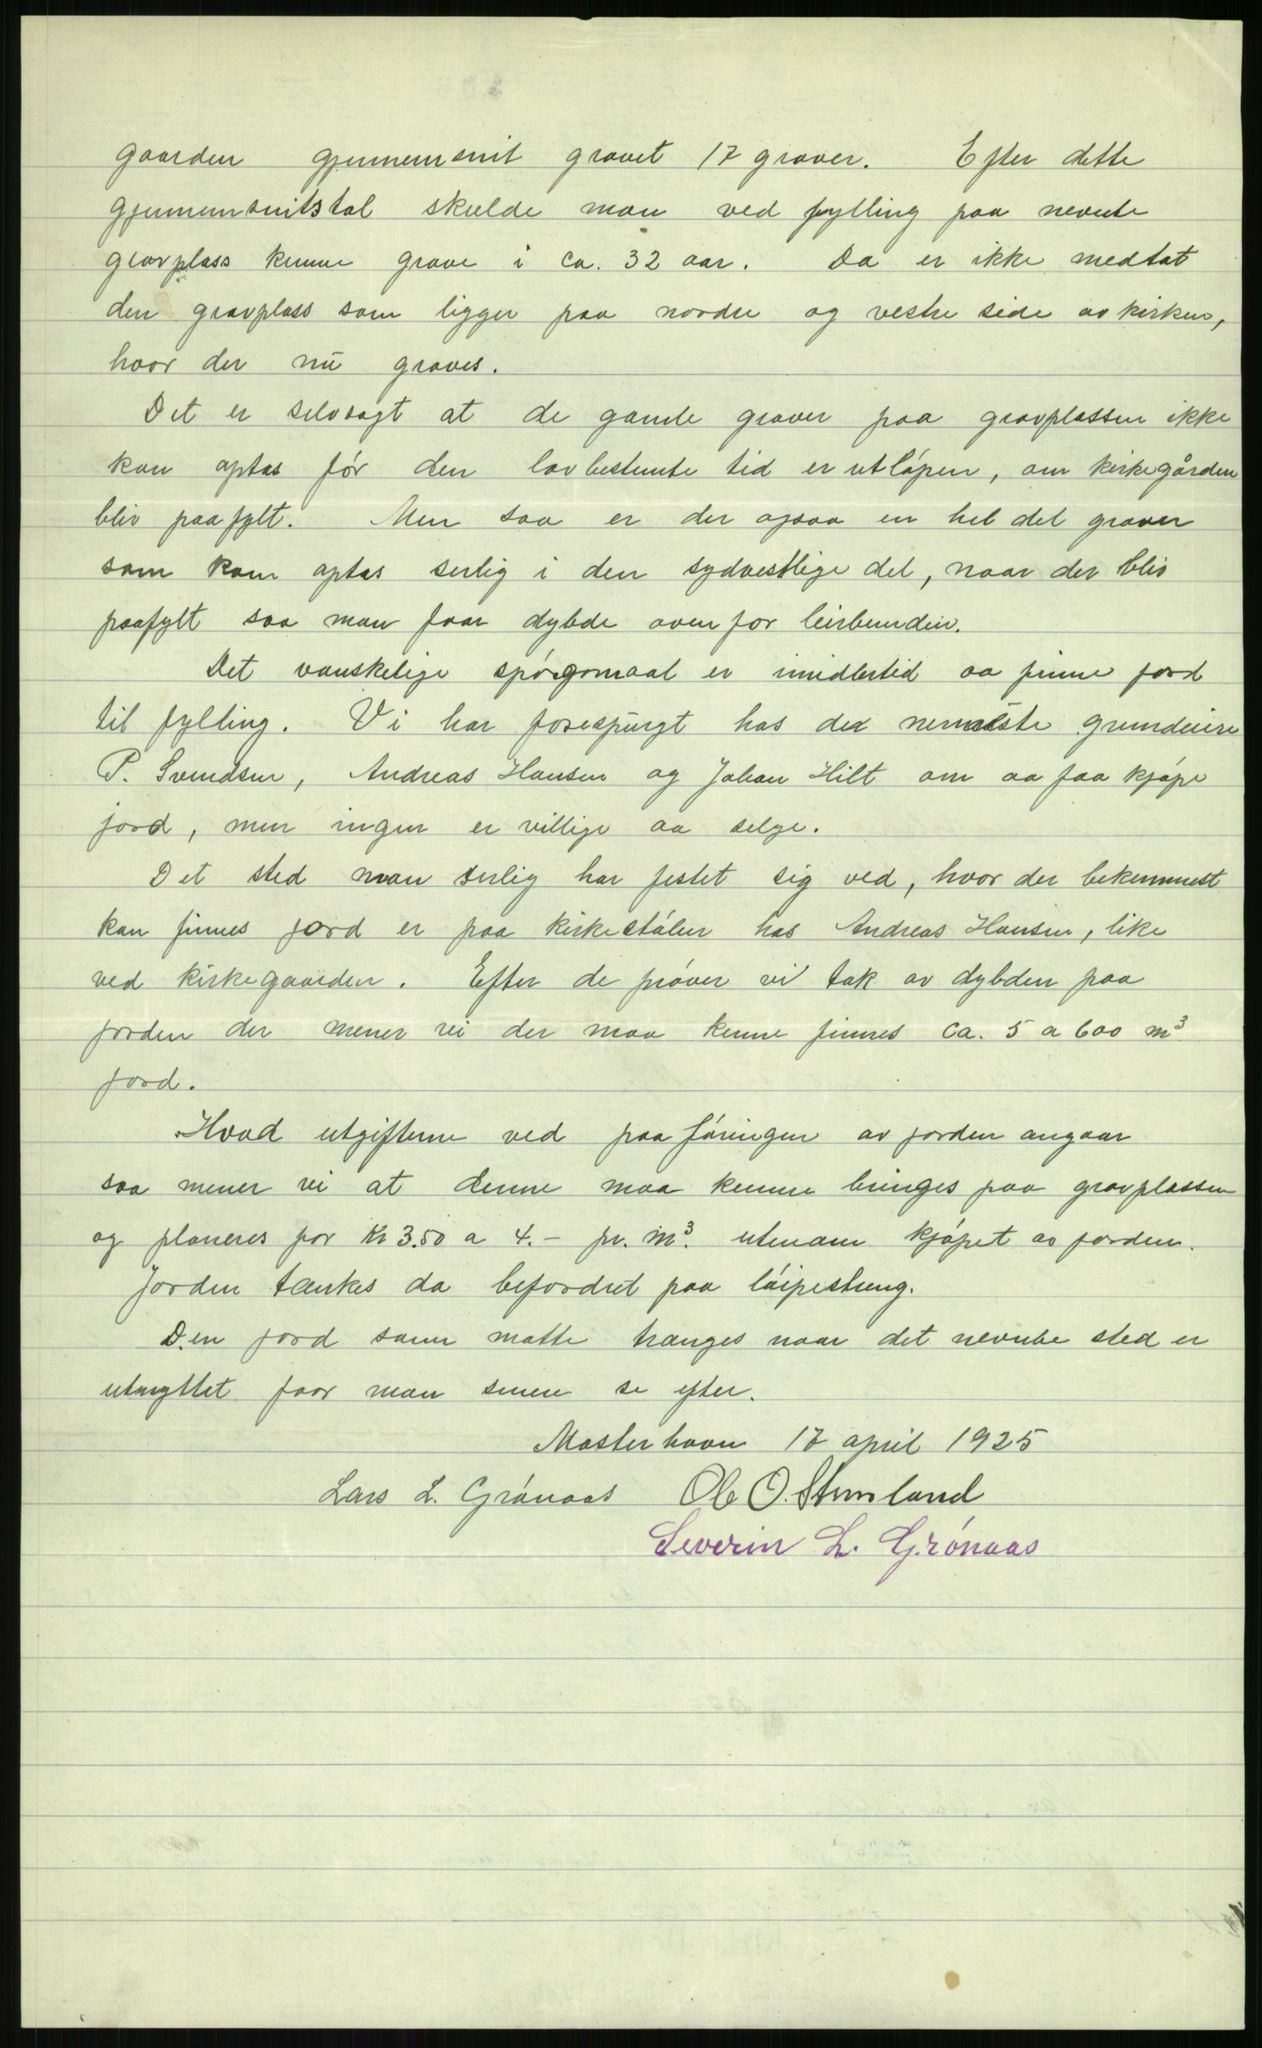 gaarden gjennemsnit gravet 17 graver. Efter dette
gjennemsnitstal skulde man ved fylling paa nevnte
gravplass kunne grave i ca. 32 aar. Da er ikke medtat
den gravplass som ligger paa nordre og vestre side av kirken,
hvor der nu graves.
Det er selvsagt at de gamle graver paa gravplassen ikke
kan optas før den lovbestemte tid er utløpen, om kirkegården
bliv paafylt. Men saa er der ogsaa en hel del graver
som kan optas serlig i den sydvestlige del, naar der bliv
paafylt saa man faar dybde ovenfor leirbunden.
Det vanskelige spørgsmaal er imidlertid aa finne jord
til fylling. Vi har forespurgt hos de nermeste grundeiere
P. Svendsen, Andreas Hansen og Johan Hilt om aa faa kjøpe
jord, men ingen er villige aa selge.
Det sted man serlig har festet sig ved, hvor der bekvemmest
kan finnes jord er paa kirkestølen hos Andreas Hansen, like
ved kirkegaarden. Efter de prøver vi tok av dybden paa
jorden der mener vi der maa kunne finnes ca. 5 a 600 m³
jord.
Hvad utgifterne ved paaføringen av jorden angaar
saa mener vi at denne maa kunne bringes paa gravplassen
og planeres for Kr 3.50 a 4.- pr. m³. utenom kjøpet av jorden.
Jorden tænkes da befordret paa løipestreng.
Den jord som matte trænges naar det nevnte sted er
utnyttet faar man senere se efter.
Mosterhavn 17 april 1925
Lars L. Grønaas Ole O. Stensland
Severin L. Grønaas